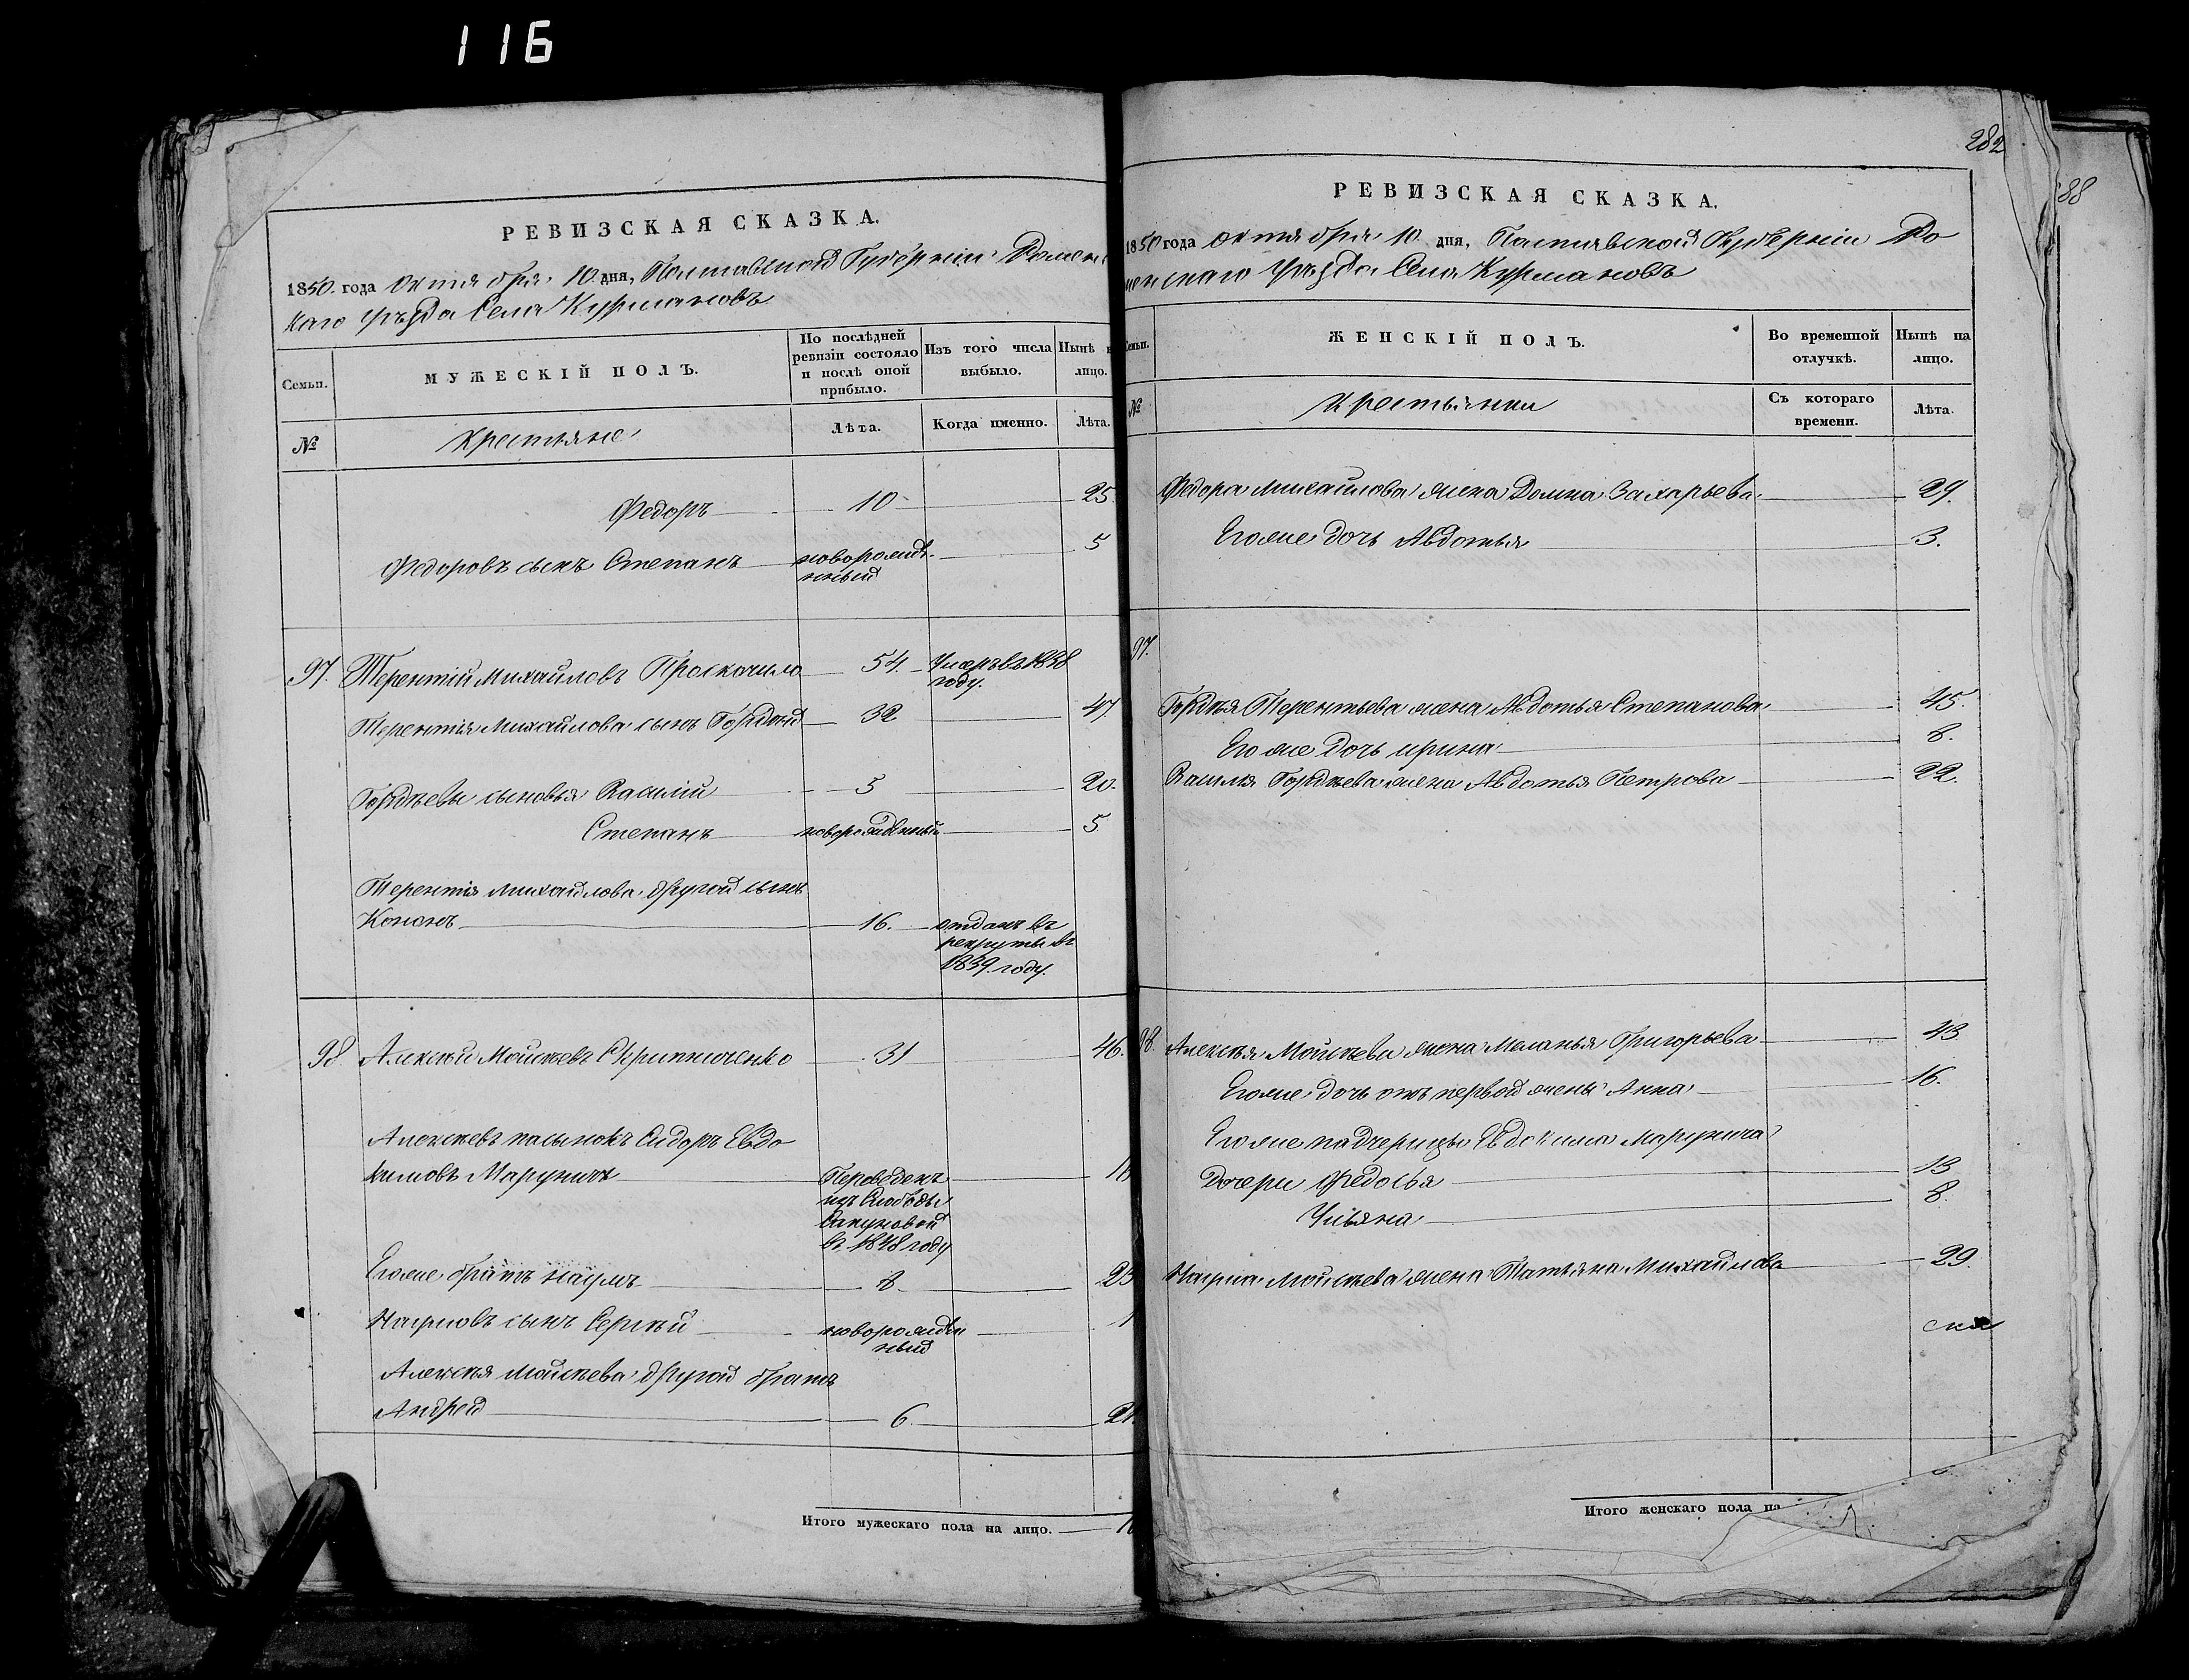 116
РЕВИЗСКАЯ СКАЗКА.
1850. года октября 10. дня, Полтавской Губернии Ромен
каго уѣзда Села Курмановъ
Семьи.
МУЖЕСКІЙ ПОЛЪ.
По послѣдней
ревизіи состояло
и послѣ оной
прибыло.
Изъ того числа
выбыло.
Нынѣ н
лицо.
№
Крестьяне
Лѣта.
Когда именно.
Лѣта.
Федоръ 10 25
Федоровъ сынъ Степанъ новорожде- 5
нный
97. Терентій Михайловъ Проскочило 54. Умеръ въ 1848
году.
Терентія Михайлова сынъ Гордѣй 32 47
Гордѣевы сыновья Василій 5 20.
Степанъ новорожденный 5
Терентія Михайлова другой сынъ
Кононъ 16. отданъ въ
рекруты въ
1839. году.
98 Алексѣй Мойсѣевъ Скрипниченко 31 46.
Алексѣевъ пасынокъ Сидоръ Евдо
кимовъ Маруничъ Переведенъ
изъ Слободы
въ 1848 году
Егоже братъ Наумъ 8 23
Наумовъ сынъ Сергѣй новорожден 1
ный
Алексѣя Мойсѣева другой братъ
Андрей 6. 21
Итого мужескаго пола на лицо.
282
РЕВИЗСКАЯ СКАЗКА.
1850 года октября 10. дня, Полтавской Губерніи Ро
менскаго уѣзда Села Курмановъ
Семьи.
ЖЕНСКІЙ ПОЛЪ.
Во временной
отлучкѣ.
Нынѣ на
лицо.
№
Крестьянки
Съ котораго
времени.
Лѣта.
Федора Михайлова жена Домна Захарьева 29.
Егоже дочь Авдотья 3.
97.
Гордѣя Терентьева жена Авдотья Степанова 45.
Егоже дочь Ирина 8.
Василія Гордѣева жена Авдотья Петрова 22.
98. Алексѣя Мойсѣева жена Меланья Григорьева 43
Егоже дочь отъ первой жены Анна 16.
Егоже падчерицы Евдокима Марунича
Дочери Федосья 13
Ульяна 8.
Наума Мойсѣева жена Татьяна Михайлова 29.
Итого женскаго пола на
88